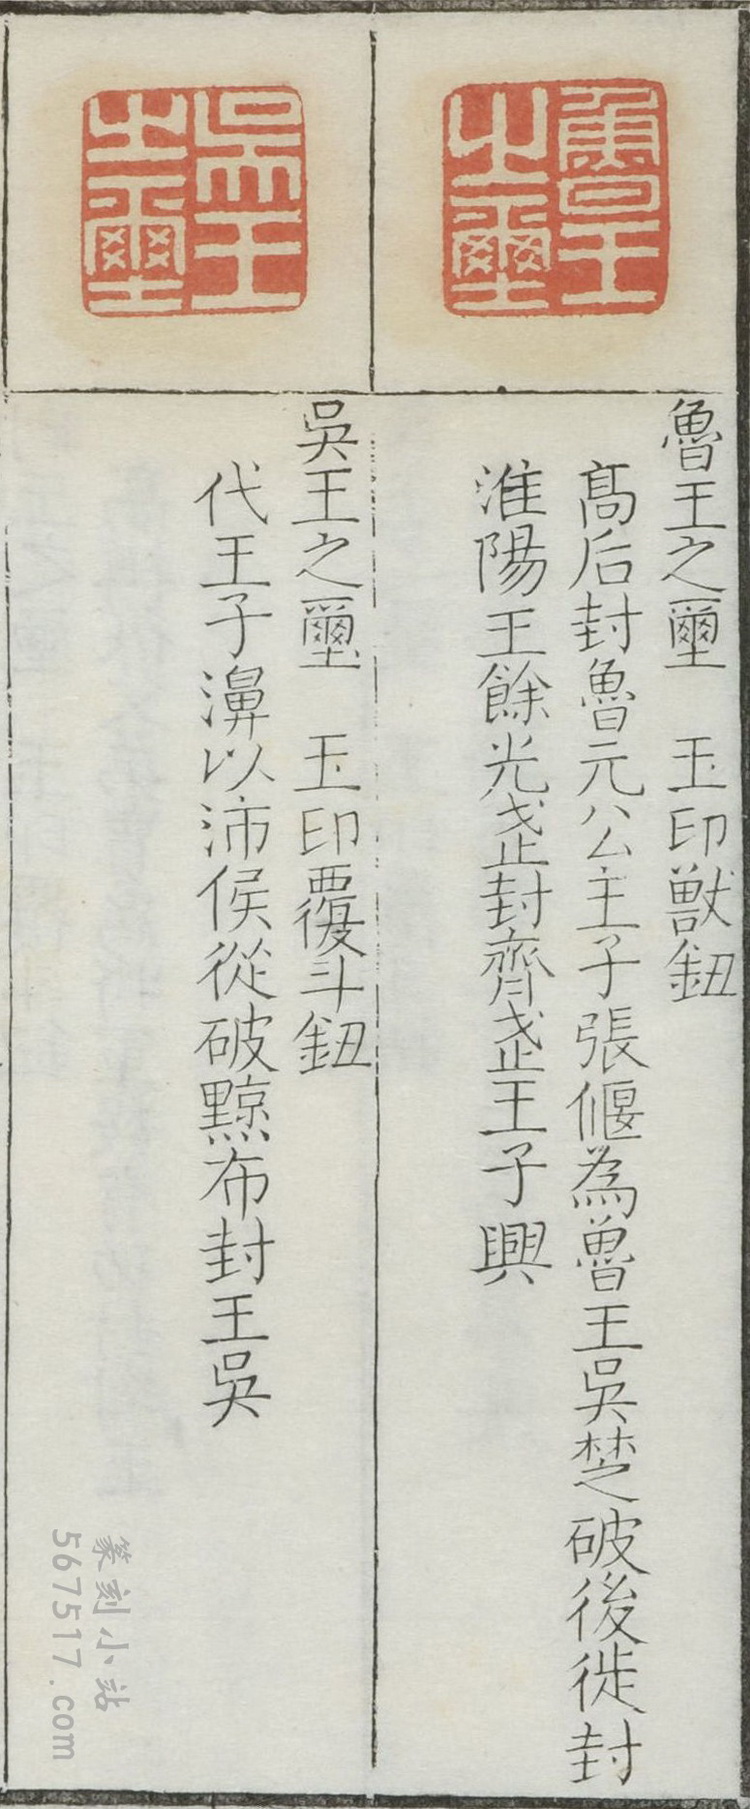 魯王之璽
吳王之璽
魯王之璽　玉印獸鈕
高后封魯元公主子張偃為魯王吳楚破後徙封
淮陽王餘光武封齊武王子興
吳王之璽　玉印覆斗鈕
代王子濞以沛侯從破黥布封王吳
篆刻小站
567517.com